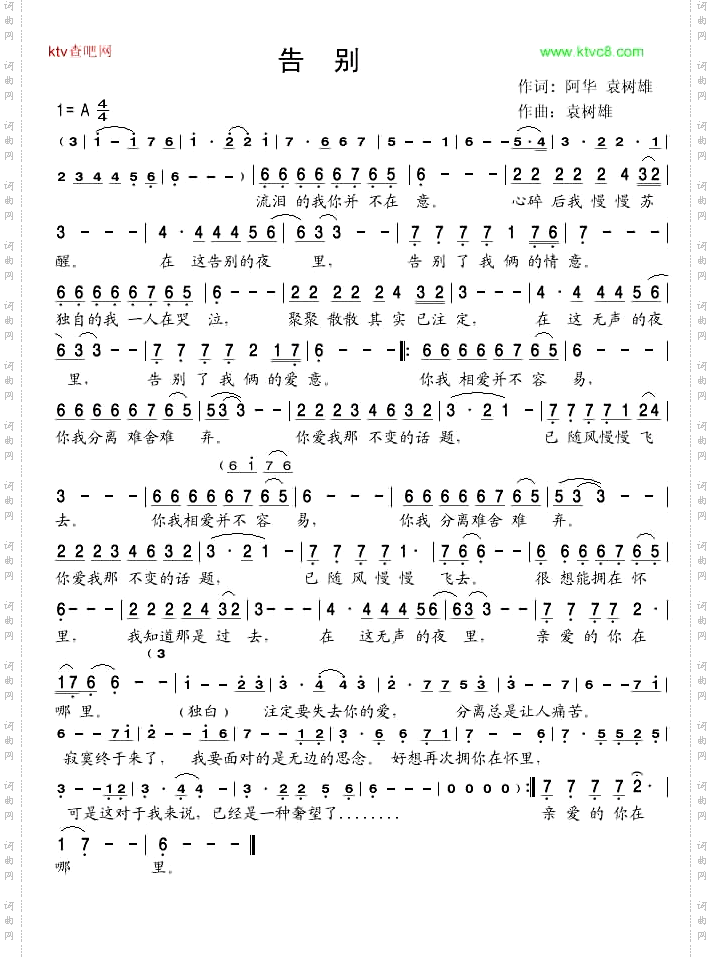 ktv查吧网
www.ktvc8.com
告 别
作词: 阿华 袁树雄
作曲: 袁树雄
1= A 4/4
(3|1 - 1 7 6|1 · 2 2 1|7 · 6 6 7|5 - - 1|6 - - -|6 - - 5·4|3 · 2 2 · 1|
2 3 4 4 5 6|6 - - -)|6 6 6 6 6 7 6 5|6 - - -|2 2 2 2 2 4 3 2|
流泪 的我你并 不在 意。 心碎 后我 慢慢 苏
3 - - -|4 · 4 4 4 5 6|6 3 3 - -|7 7 7 7 1 7 6|7 - - -|
醒。 在 这告别的夜 里, 告 别 了 我 俩 的情 意。
6 6 6 6 6 7 6 5|6 - - -|2 2 2 2 2 4 3 2|3 - - -|4 · 4 4 4 5 6|
独自的我 一人在哭 泣, 聚聚 散散 其 实 已注 定, 在 这 无声 的夜
6 3 3 - -|7 7 7 7 2 1 7|6 - - -‖: 6 6 6 6 6 7 6 5|6 - - -|
里, 告 别 了 我 俩 的爱 意。 你我 相爱并不 容 易,
6 6 6 6 6 7 6 5|5 3 3 - -|2 2 2 3 4 6 3 2|3 · 2 1 -|7 7 7 7 1 2 4|
你我分离 难舍难 弃。 你爱我那 不变的话 题, 已 随风慢慢 飞
(6 1 7 6
3 - - -|6 6 6 6 6 7 6 5|6 - - -|6 6 6 6 6 7 6 5|5 3 3 - -|
去。 你我相爱并不 容 易, 你我 分离难舍 难 弃。
2 2 2 3 4 6 3 2|3 · 2 1 -|7 7 7 7 1·|7 6 6 - -|6 6 6 6 7 6 5|
你爱我那 不变的话 题, 已 随 风 慢慢 飞去。 很 想能拥在 怀
6 - - -|2 2 2 2 4 3 2|3 - - -|4 · 4 4 4 5 6|6 3 3 - -|7 7 7 7 2 ·|
里, 我知道那是 过 去, 在 这无声 的夜 里, 亲 爱 的 你 在
(3
1 7 6 6 - -|1 - - 2 3|3 · 4 4 3|2 · 7 7 5 3|3 - - 7|6 - - 6|6 - - 7 1|
哪 里。 (独白) 注定要失去你的爱, 分离总是让人痛苦。
6 - - 7 1|2 - - 1 6|7 - - 1 2|3 - - 1 2|7 - - 6|7 - - 6|7 · 5 5 2 5|
寂寞终于来了, 我要面对的是无边的思念。 好想再次拥你在怀里,
3 - - 1 2|3 · 3 4 4|3 · 2 2 5 6|6 - - -|0 0 0 0):‖7 7 7 7 2 ·|
可是这对于我来说, 已经是一种奢望了........ 亲 爱 的 你 在
1 7 - -|6 - - -‖
哪 里。
词曲网